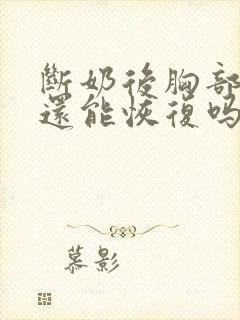 斷奶後胸部
還能恢復吗
慕影